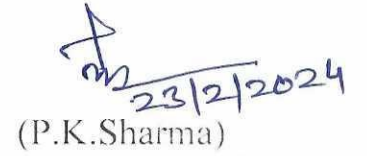 23/2/2024
(P.K.Sharma)